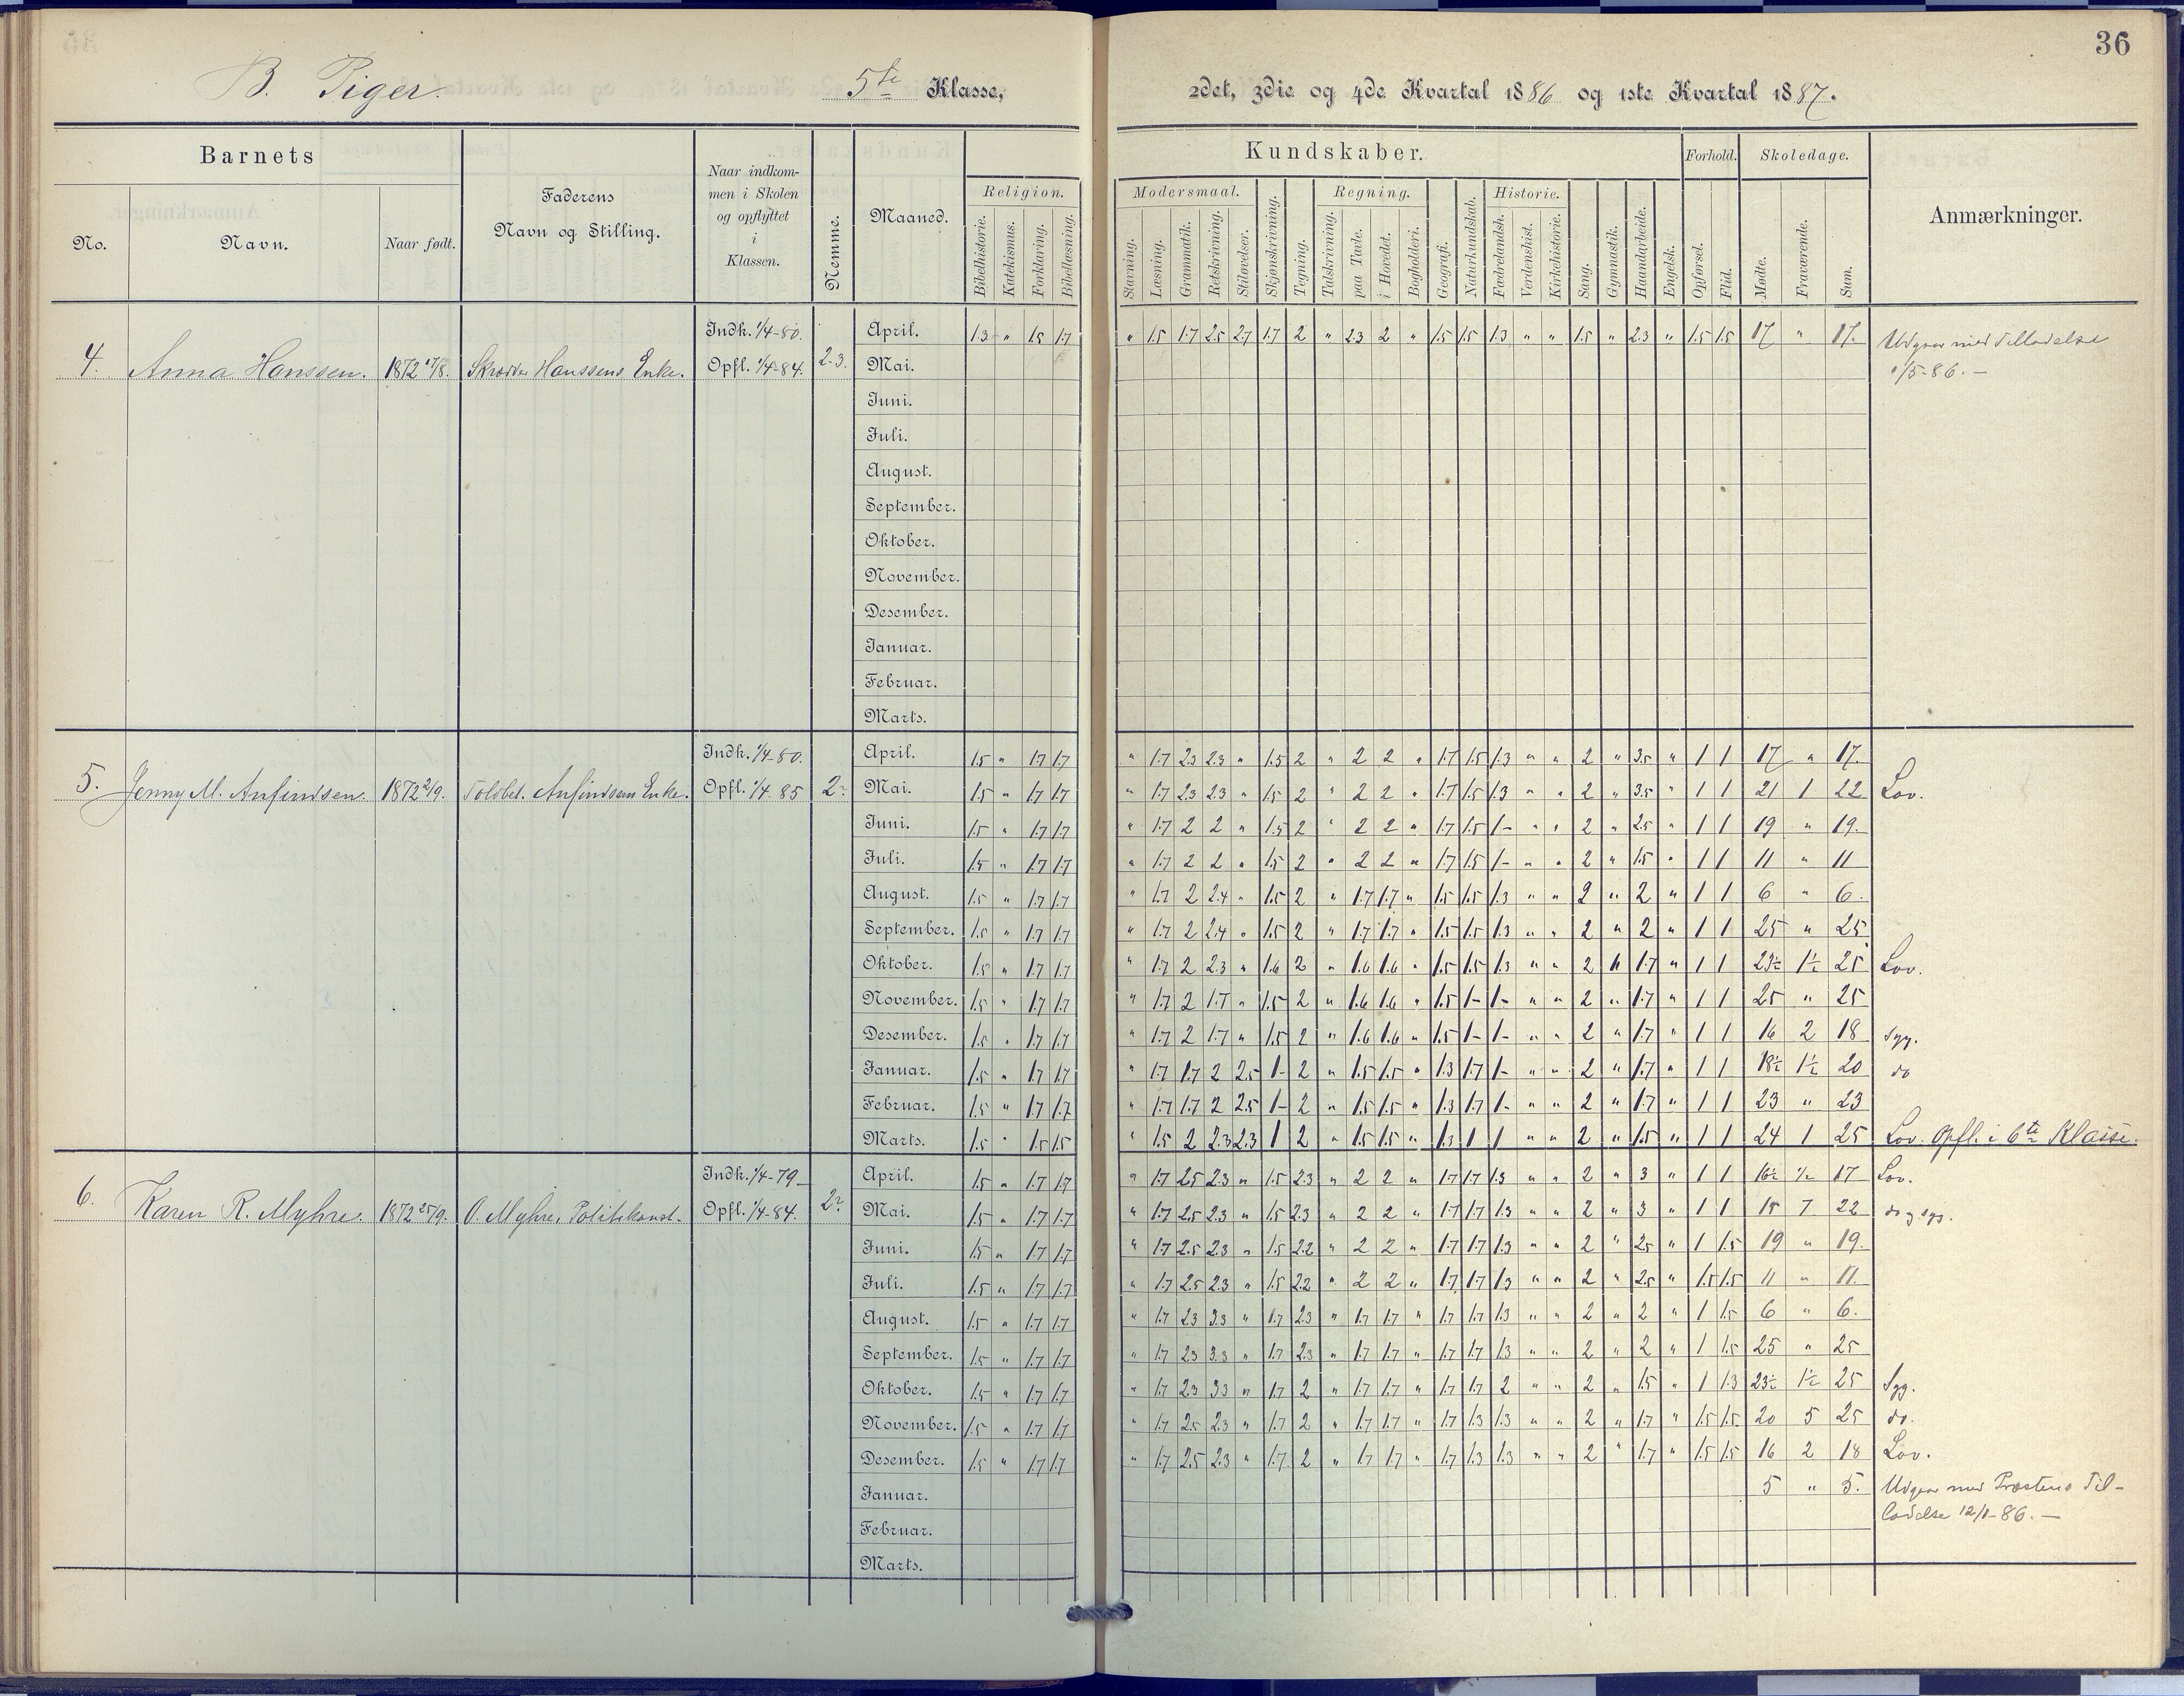 36
B. Piger. 5te Klasse, 2det, 3die og 4de Kvartal 1886 og 1ste Kvartal 1887.
Barnets
No.
Navn.
Naar født.
Faderens
Navn og Stilling.
Naar indkom-
men i Skolen
og opflyttet
i
Klassen.
Nemme.
Maaned.
Religion.
Bibelhistorie.
Katekismus.
Forklaring.
Bibellæsning.
Kundskaber.
Modersmaal.
Stavning.
Læsning.
Grammatik.
Retskrivning.
Stiløvelser.
Skjønskrivning.
Tegning.
Regning.
Talskrivning.
paa Tavle.
i Hovedet.
Bogholderi.
Geografi.
Naturkundskab.
Historie.
Fædrelandsh.
Verdenshist.
Kirkehistorie.
Sang.
Gymnastik.
Haandarbeide.
Engelsk.
Forhold.
Opførsel.
Flid.
Skoledage.
Mødte.
Fraværende.
Sum.
Anmærkninger.
4. Anna Hanssen. 1872 Skrædder Hanssens Enke. Indk. 1/4-80. Opfl. 1/4-84. 2-3.
April. 1.3 " 1.5 1.7 " 1.5 1.7 2.5 2.7 1.7 2 " 2.3 2 " 1.5 1.5 1.3 " " 1.5 " 2.3 " 1.5 1.5 17 " 17. Udgaar med Tilladelse
Mai. /5-86. —
Juni.
Juli.
August.
September.
Oktober.
November.
Desember.
Januar.
Februar.
Marts.
5. Jenny M. Anfindsen. 1872 2/9. Toldbet. Anfindsens Enke. Indk. 1/4-80. Opfl. 1/4 85 2-
April. 1.5 " 1.7 1.7 " 1.7 2.3 2.3 " 1.5 2 " 2 2 " 1.7 1.5 1.3 " " 2 " 3.5 " 1 1 17 " 17.
Mai. 1.5 " 1.7 1.7 " 1.7 2.3 2.3 " 1.5 2 " 2 2 " 1.7 1.5 1.3 " " 2 " 3.5 " 1 1 21 1 22 Lov.
Juni. 1.5 " 1.7 1.7 " 1.7 2 2 " 1.5 2 " 2 2 " 1.7 1.5 1- " " 2 " 2.5 " 1 1 19 " 19.
Juli. 1.5 " 1.7 1.7 " 1.7 2 2 " 1.5 2 " 2 2 " 1.7 1.5 1- " " 2 " 1.5 " 1 1 11 " 11
August. 1.5 " 1.7 1.7 " 1.7 2 2.4 " 1.5 2 " 1.7 1.7 " 1.5 1.5 1.3 " " 2 " 2 " 1 1 6 " 6.
September. 1.5 " 1.7 1.7 " 1.7 2 2.4 " 1.5 2 " 1.7 1.7 " 1.5 1.5 1.3 " " 2 " 2 " 1 1 25 " 25
Oktober. 1.5 " 1.7 1.7 " 1.7 2 2.3 " 1.6 2 " 1.6 1.6 " 1.5 1.5 1.3 " " 2 " 1.7 " 1 1 23½ 1½ 25 Lov.
November. 1.5 " 1.7 1.7 " 1.7 2 1.7 " 1.5 2 " 1.6 1.6 " 1.5 1- 1- " " 2 " 1.7 " 1 1 25 " 25
Desember. 1.5 " 1.7 1.7 " 1.7 2 1.7 " 1.5 2 " 1.6 1.6 " 1.5 1- 1- " " 2 " 1.7 " 1 1 16 2 18 syg.
Januar. 1.5 " 1.7 1.7 " 1.7 1.7 2 2.5 1- 2 " 1.5 1.5 " 1.3 1.7 1- " " 2 " 1.7 " 1 1 18½ 1½ 20 do
Februar. 1.5 " 1.7 1.7 " 1.7 1.7 2 2.5 1- 2 " 1.5 1.5 " 1.3 1.7 1- " " 2 " 1.7 " 1 1 23 " 23
Marts. 1.5 " 1.5 1.5 " 1.5 2 2.3 2.3 1 2 " 1.5 1.5 " 1.3 1 1 " " 2 " 1.5 " 1 1 24 1 25 Lov. Opfl. i 6te Klasse.
6. Karen R. Myhre. 1872 25/9. O. Myhre, Politikonst. Indk. 1/4-79 Opfl. 1/4-84. 2-
April. 1.5 " 1.7 1.7 " 1.7 2.5 2.3 " 1.5 2.3 " 2 2 " 1.7 1.7 1.3 " " 2 " 3 " 1 1 16½ ½ 17 Lov.
Mai. 1.5 " 1.7 1.7 " 1.7 2.5 2.3 " 1.5 2.3 " 2 2 " 1.7 1.7 1.3 " " 2 " 3 " 1 1 15 7 22 do og syg.
Juni. 1.5 " 1.7 1.7 " 1.7 2.5 2.3 " 1.5 2.2 " 2 2 " 1.7 1.7 1.3 " " 2 " 2.5 " 1 1.5 19 " 19.
Juli. 1.5 " 1.7 1.7 " 1.7 2.5 2.3 " 1.5 2.2 " 2 2 " 1.7 1.7 1.3 " " 2 " 2.5 " 1.5 1.5 11 " 11.
August. 1.5 " 1.7 1.7 " 1.7 2.3 3.3 " 1.7 2.3 " 1.7 1.7 " 1.7 1.7 1.3 " " 2 " 2 " 1 1.5 6 " 6.
September. 1.5 " 1.7 1.7 " 1.7 2.3 3.3 " 1.7 2.3 " 1.7 1.7 " 1.7 1.7 1.3 " " 2 " 2 " 1 1.5 25 " 25
Oktober. 1.5 " 1.7 1.7 " 1.7 2.3 3.3 " 1.7 2 " 1.7 1.7 " 1.7 1.7 2 " " 2 " 1.5 " 1 1.3 23½ 1½ 25 Syg.
November. 1.5 " 1.7 1.7 " 1.7 2.5 2.3 " 1.7 2 " 1.7 1.7 " 1.7 1.3 1.3 " " 2 " 1.7 " 1.5 1.5 20 5 25 do.
Desember. 1.5 " 1.7 1.7 " 1.7 2.5 2.3 " 1.7 2 " 1.7 1.7 " 1.7 1.3 1.3 " " 2 " 1.7 " 1.5 1.5 16 2 18 Lov.
Januar. 5 " 5. Udgaar med Præstens Til-
Februar. ladelse 12/1-86. —
Marts.